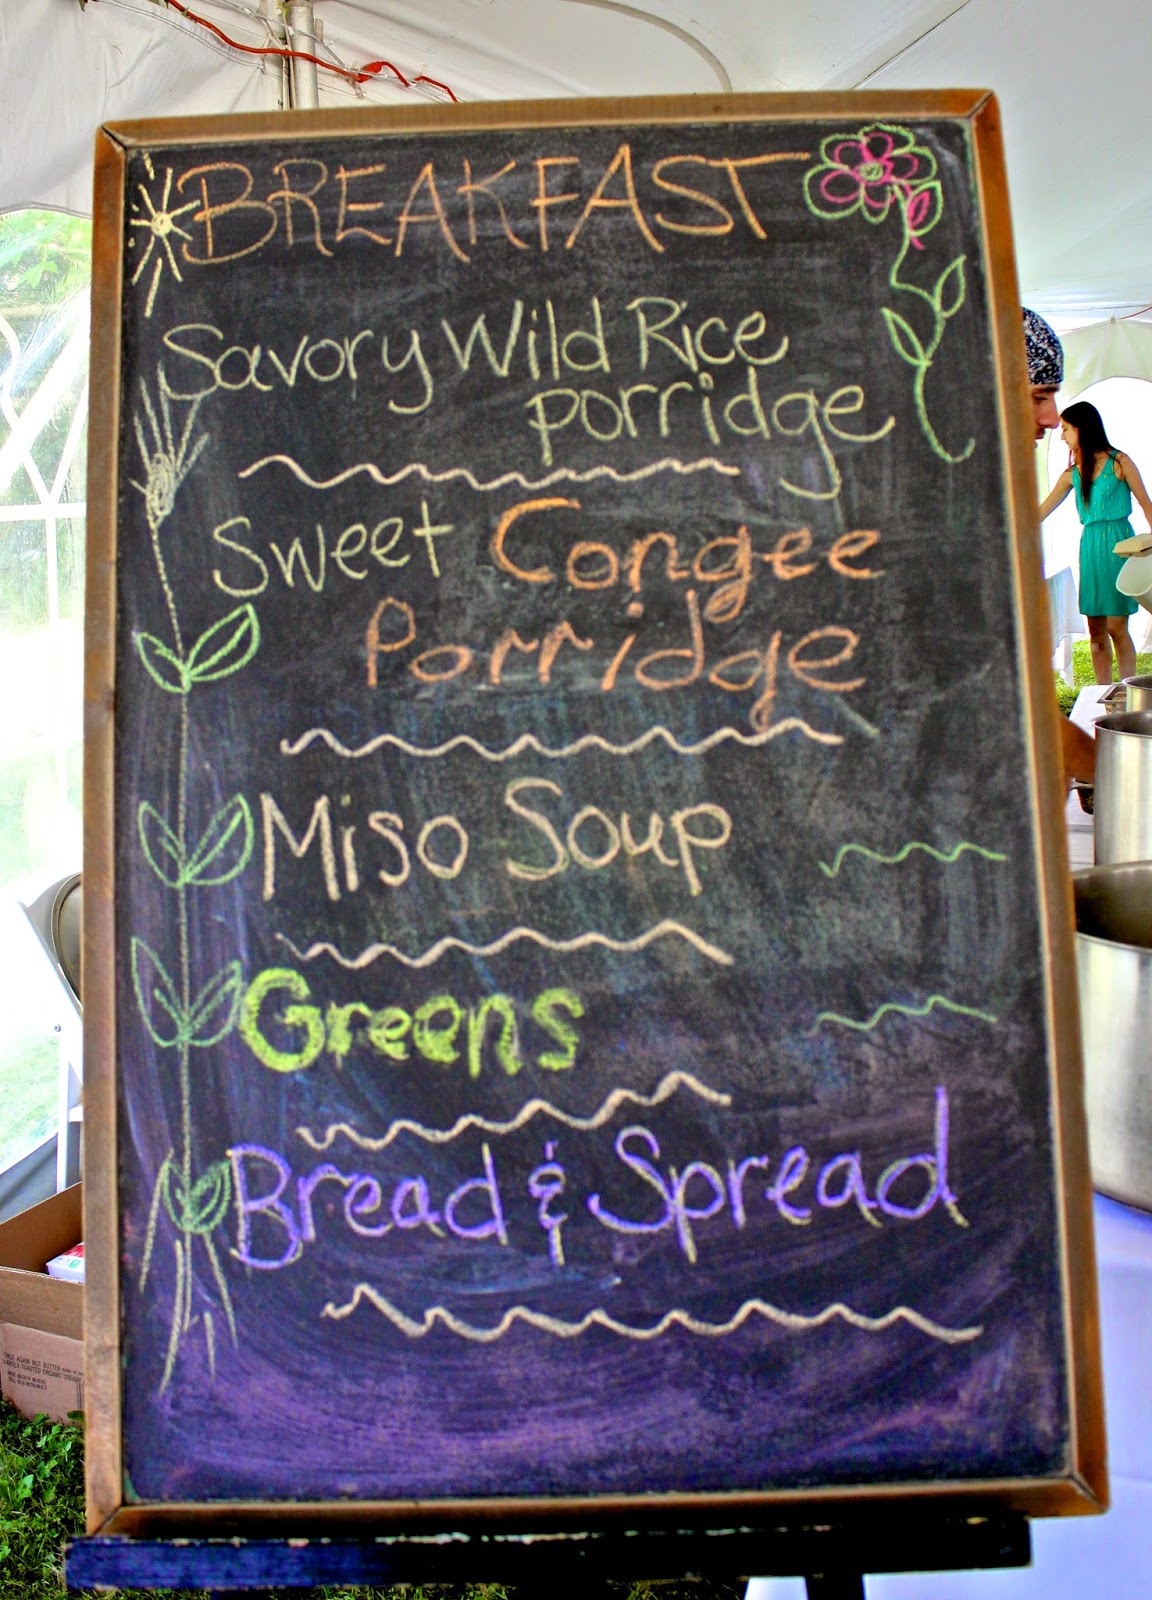 BREAKFAST
Savory Wild Rice
porridge
Sweet Congee
Porridge
Miso Soup
Greens
Bread & Spread
ONCE AGAIN NUT BUTTER
LIGHTLY TOASTED ORGANIC CREAMY